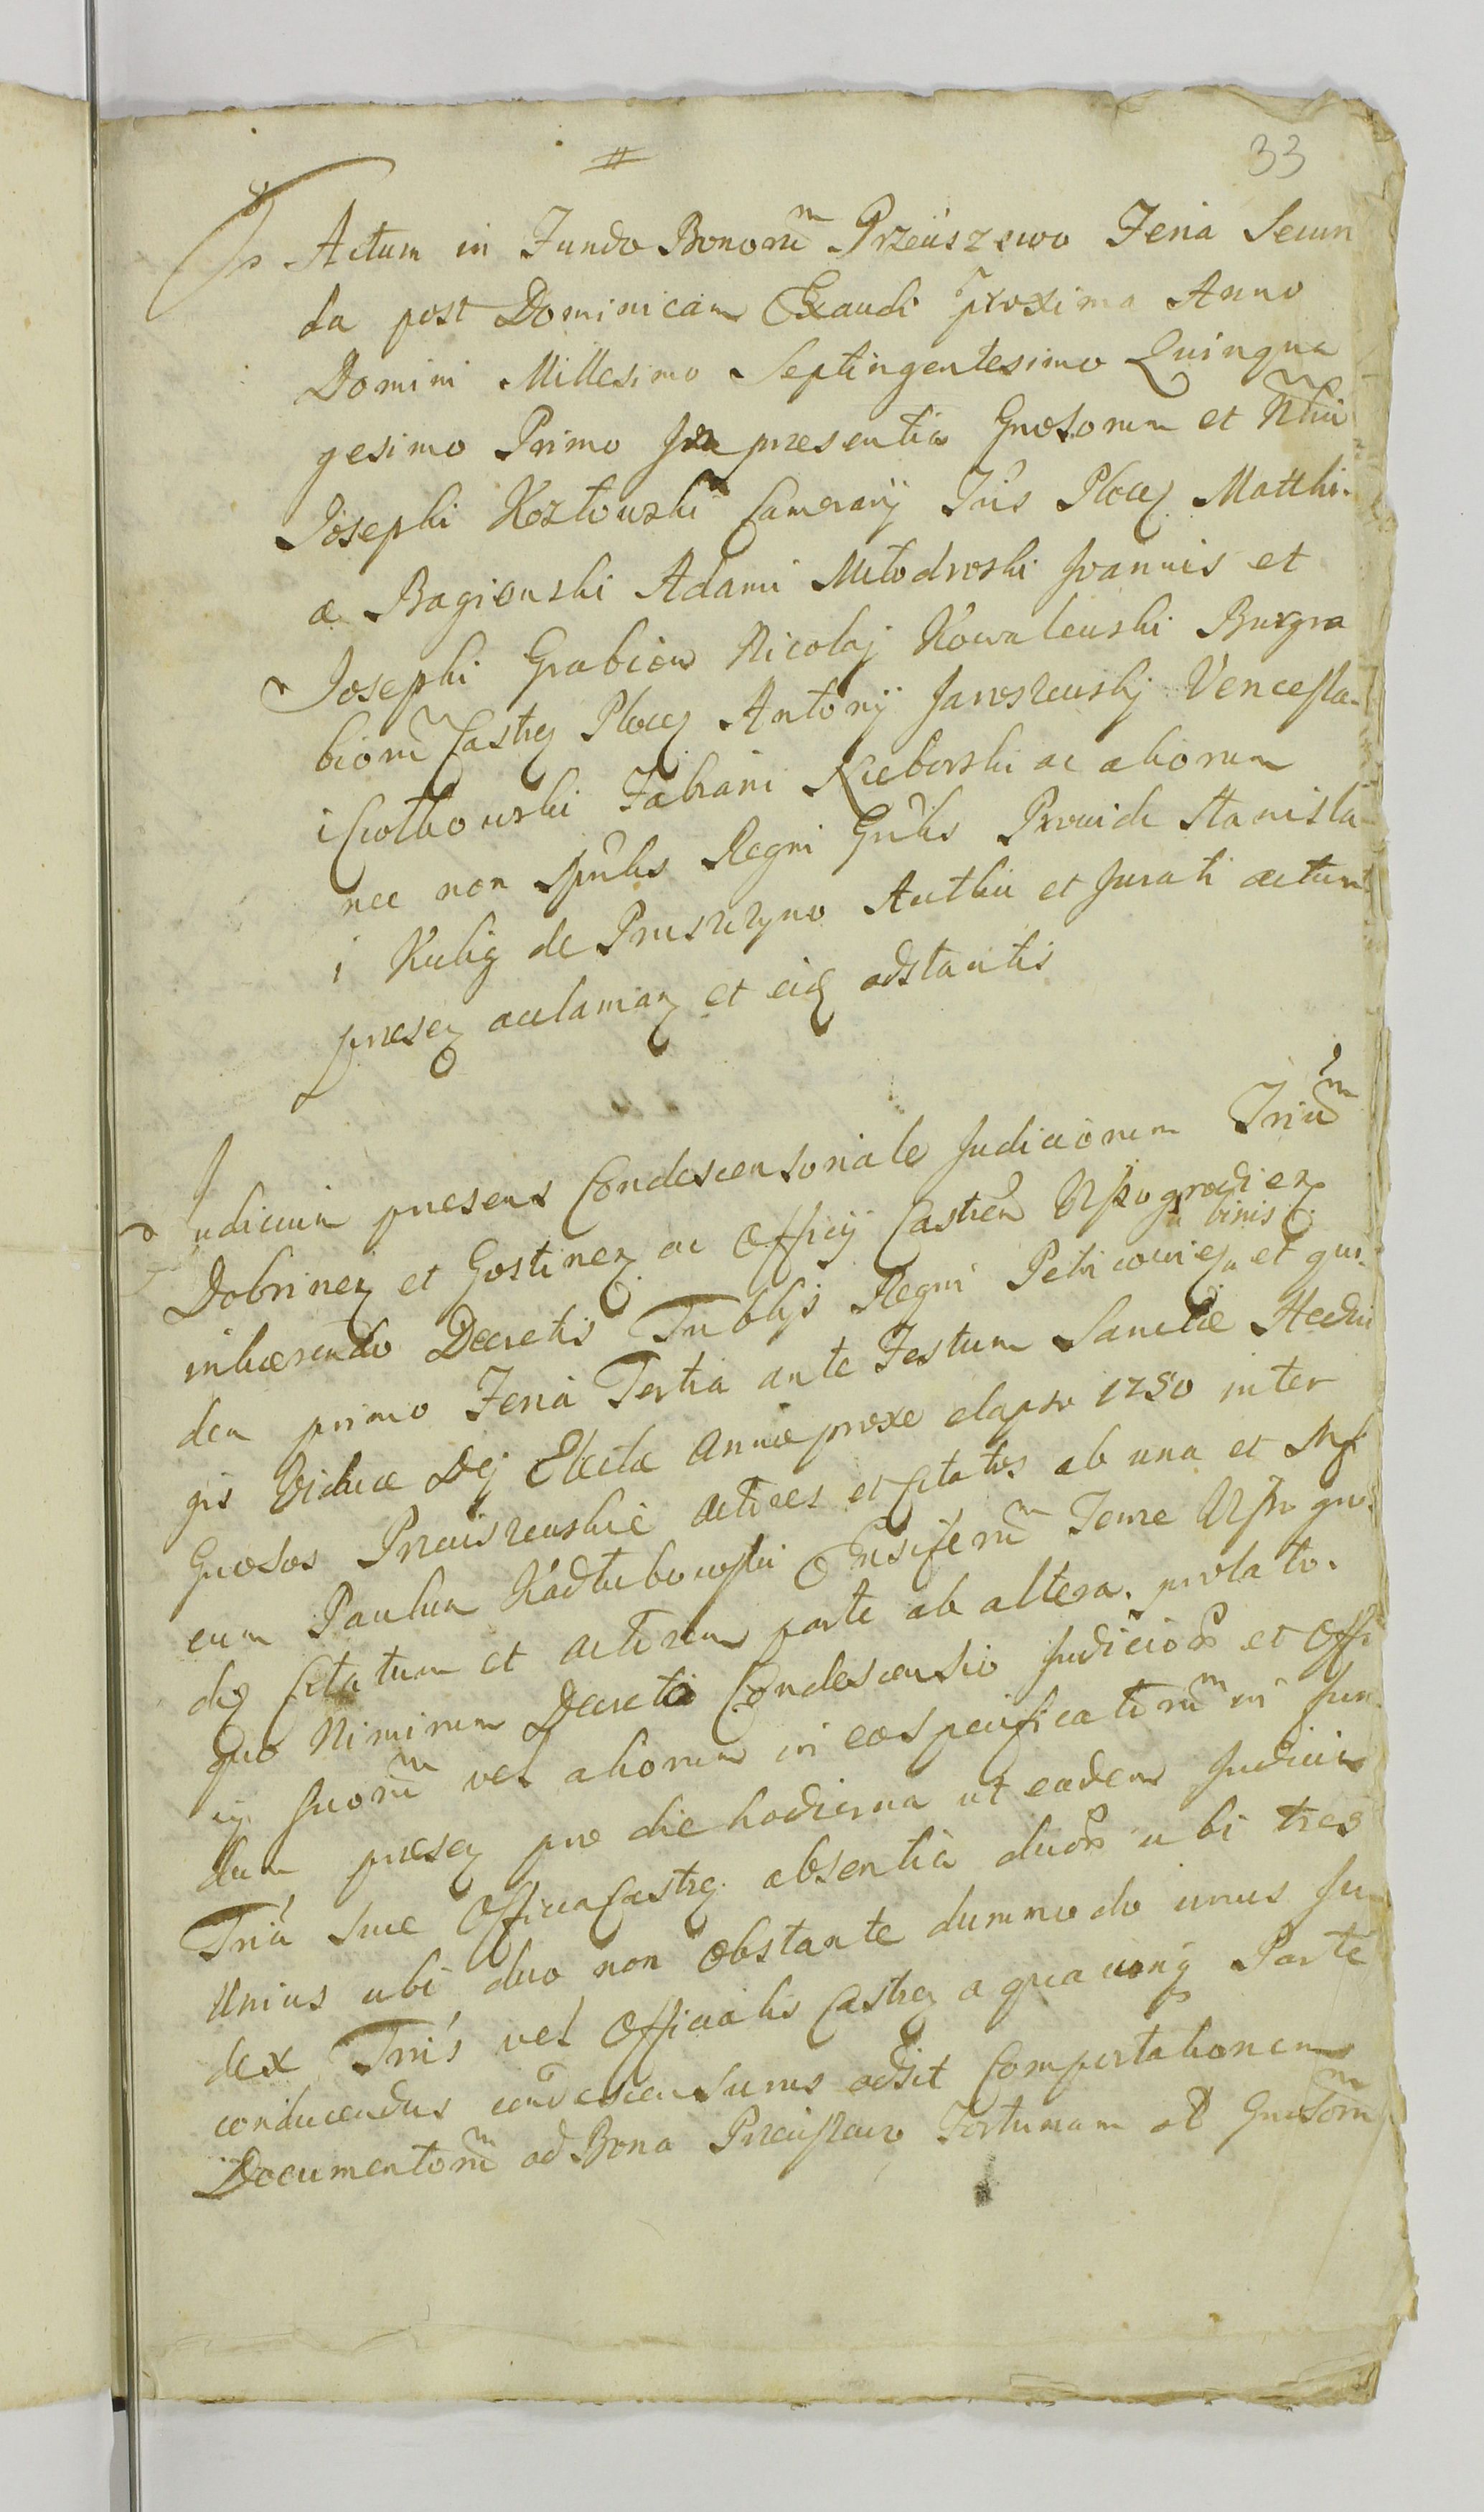 33
Actum in Fundo Bonorũ Przeuszewo Feria Secun
da post Dominicam Exaudi proxima Anno
Domini Millesimo Septingentesimo Quinqua
gesimo Primo In presentia Gnosorum et
Josephi Kozłowski Camerarij Tris Plocen Matthi-
a Bagienski Adami Młodroski Joannis et
Josephi Grabiow Nicolaj Kowalewski Burgra
biorũ Castren Plocen Antonij Jaroszewskj Vencesla-
i Ciołkowski Fabiani Nieborski ac aliorum
nec non Spnlis Regni Gnlis Providi Stanisla
i Kulig de Pruszczyno Authu et Jurati actum
presen acclaman et eid adstantis
Judicium presens Condescensoriale Judiciorum Trium
Dobrinen et Gostinen ac Officij Castren
a binis
inhærendo Decretis Tribblis Regni Petricovien et qui-
dem primo Feria Tertia ante Festum Sanctæ Hedvi
gis Viduæ Dej Electæ Anni proxe elapso 1750 inter
Gnosos Preciszewskie actores et Citatos ab una et Mf
cum Paulum Kadłubowski Ensiferũ Terræ
dien Citatum et actorem parte ab altera. prolato.
quo Nimirum Decreto Condescensio Judiciorũ et Offi
cij suorũ vel aliorum in eo specificatorũ in fun
dum presen pro die hodierna ut eadem Judicia
Tria sive Officia Castren absentia duorũ ubi tres
Unius ubi duo non obstante dummodo unus Ju
dex Tris vel Officialis Castren a quacunq Parte
conducendus condescensurus adsit Comportationem
Documentorũ ad Bona Preciszewo Fortunam olĩ Gnosorũ